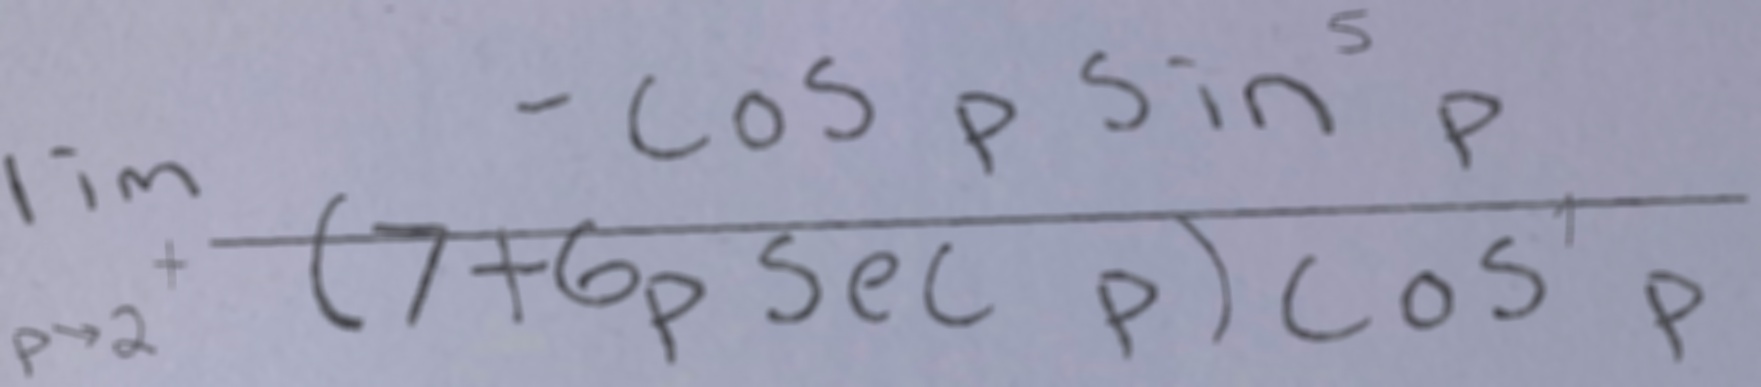 lim p→2⁺ (-cos p sin⁵ p) / ((7+6p sec p) cos¹ p)